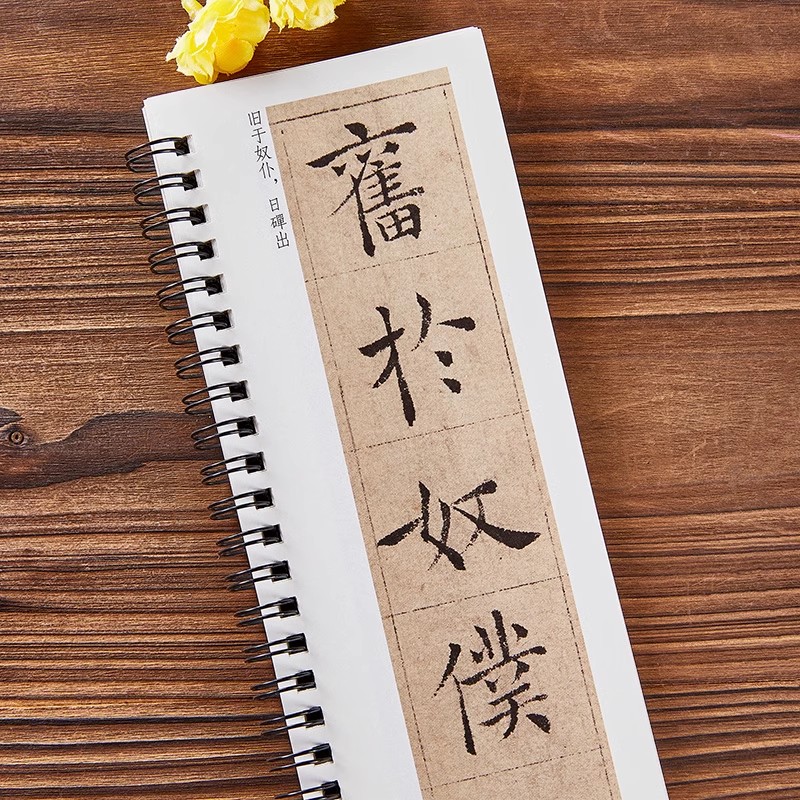 旧于奴仆，日磾出
舊於奴僕